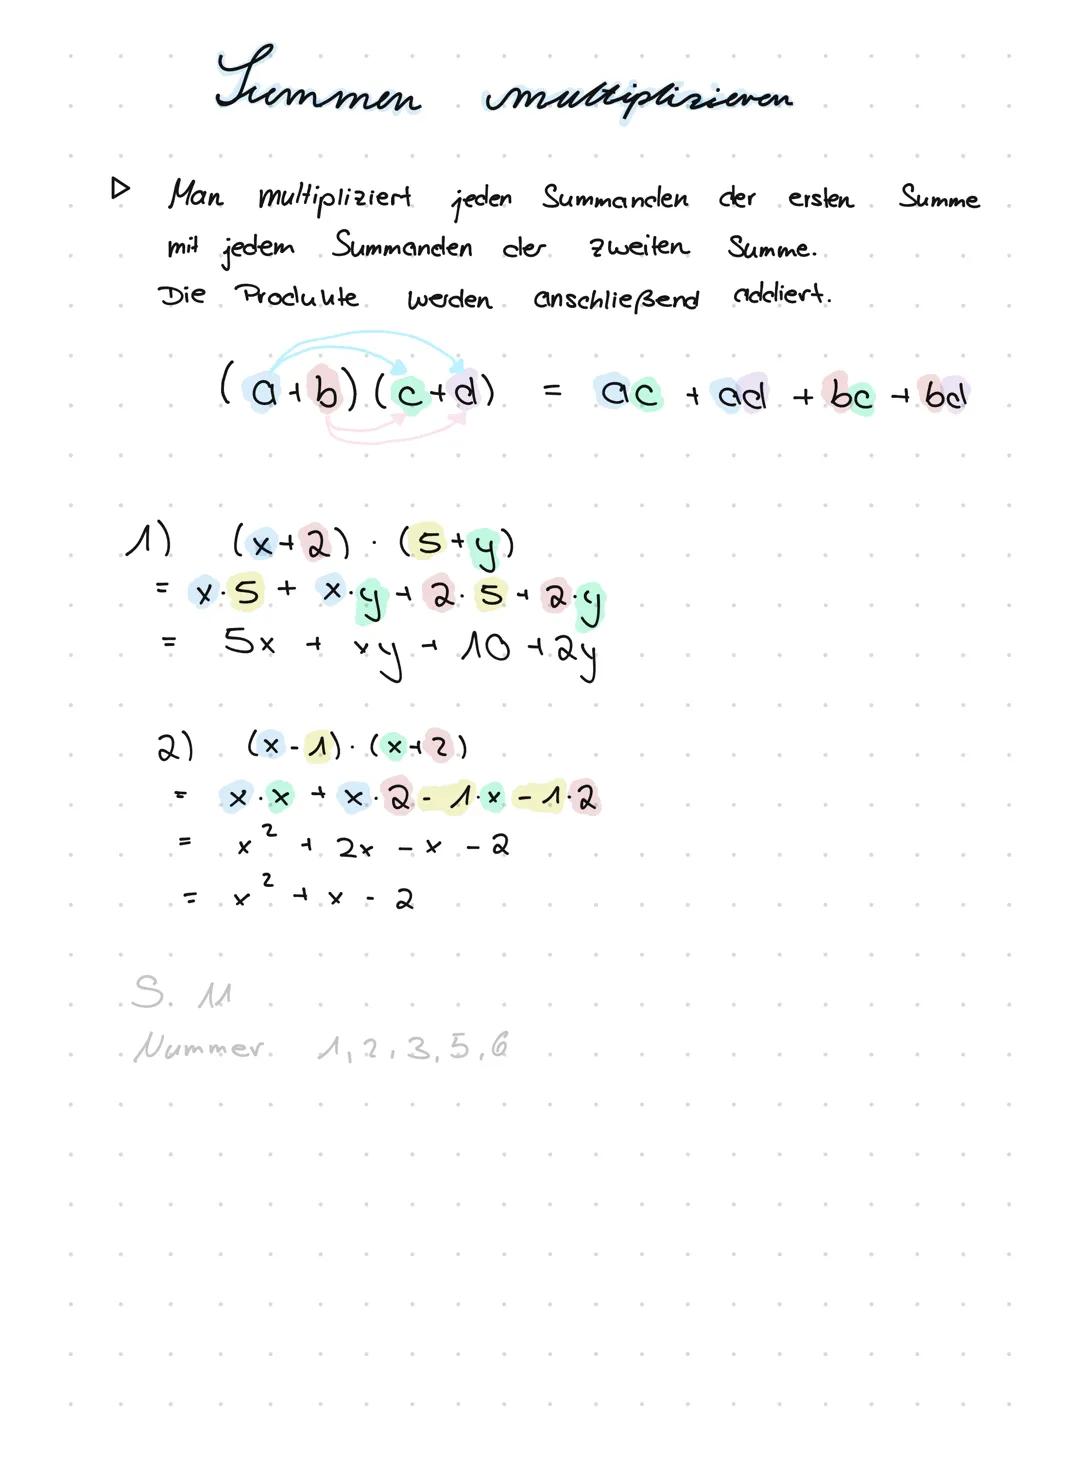 Summen multiplizieren
▷ Man multipliziert jeden Summanden der ersten Summe
mit jedem Summanden der zweiten Summe.
Die Produkte werden anschließend addiert.
(a+b)(c+d) = ac + ad + bc + bd
1) (x+2) · (5+y)
= x·5 + x·y + 2·5 + 2·y
= 5x + xy + 10 + 2y
2) (x-1)·(x+2)
= x·x + x·2 - 1·x - 1·2
= x² + 2x - x - 2
= x² + x - 2
S. 11
Nummer 1, 2, 3, 5, 6